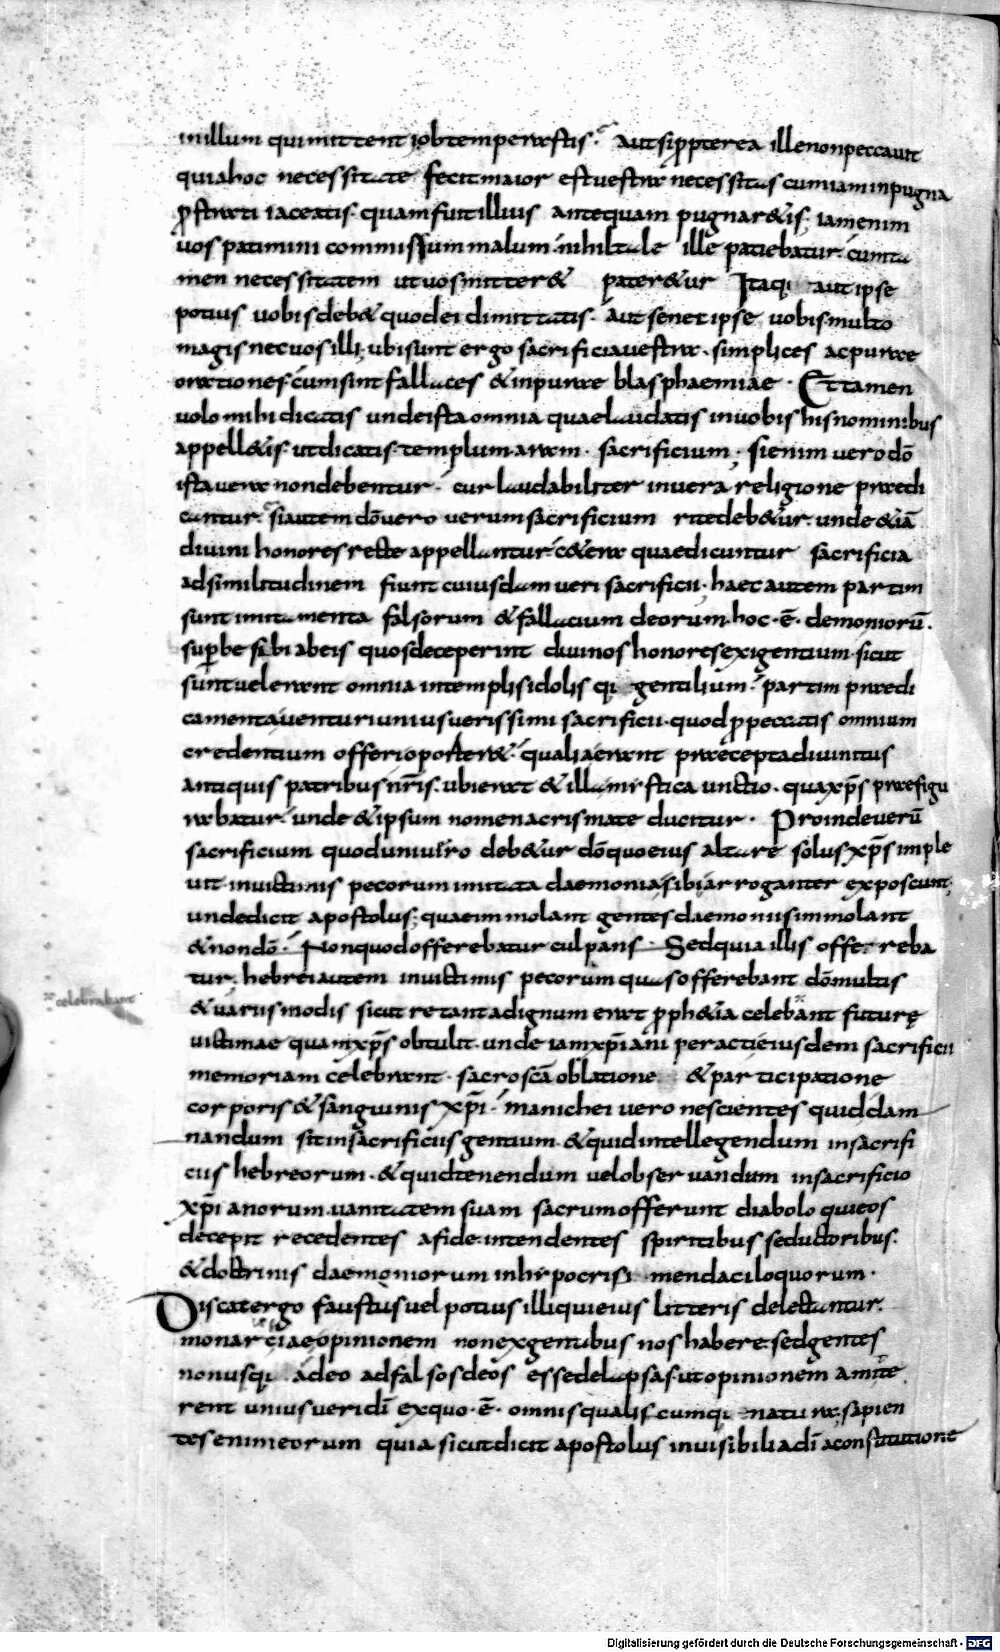 in illum qui mittent iobtemperastis. Aut si ꝓpterea ille non peccauit
quia hoc necessitate fecit maior est uestra necessitas cum iam in pugna
ꝓstrati iaceatis. quam fuit illius antequam pugnaret is. iam enim
uos patimini commissum malum. nihil tale ille patiebatur. cum ta
men necessitatem ut uos mitteret pateretur Itaqi aut ipse
potius uobis debet quod ei dimittatis. Aut se nec ipse uobis multo
magis nec uos illi. ubi sunt ergo sacrificia uestra. simplices ac purae
orationes. cum sint fallaces & inpurae blasphaemiae. Et tamen
uolo mihi dicatis unde ista omnia quae laudatis in uobis his nominibus
appelletis. ut dicatis. templum. aram. sacrificium. si enim uero dō
ista uera non debentur. cur laudabiliter in uera religione praedi
cantur. si autem dō uero uerum sacrificium rite debetur. unde & iā
diuini honores recte appellantur. cetera quae dicuntur sacrificia
ad similitudinem fiunt cuiusdam ueri sacrificii. haec autem partim
sunt imitamenta falsorum & fallacium deorum. hoc. ē. demoniorū.
superbe sibi ab eis quos deceperint diuinos honores exigentium. sicut
sunt uel erant omnia in templis idolis qi gentilium. partim praedi
camenta uenturi unius uerissimi sacrificii. quod ꝓ peccatis omnium
credentium offeri oporteret. qualia erant praecepta diuinitus
antiquis patribus nr̄is. ubi erat & illa mystica unctio. qua xp̄s praefigu
rabatur. unde & ipsum nomen a crismate ducitur. Proinde uerū
sacrificium quod uni uero debetur dō quo eius altare solus xp̄s imple
uit. in uictimis pecorum imitata daemonia sibi arroganter exposcunt.
unde dicit apostolus. quae immolant gentes daemoniis immolant
& non dō. Non quod offerebatur culpans. Sed quia illis offereba
tur. hebrei autem in uictimis pecorum quas offerebant dō multis
& uariis modis sicut re tanta dignum erat ꝓphetia celebant futurę
celebrabant
uictimae quam xp̄s obtulit. unde iam xp̄iani peracti eiusdem sacrificii
memoriam celebrant. sacrosc̄a oblatione & participatione
corporis & sanguinis xp̄i. manichei uero nescientes quid dam
nandum sit in sacrificiis gentium. & quid intellegendum in sacrifi
ciis hebreorum. & quid tenendum uel obseruandum in sacrificio
xp̄ianorum. uanitatem suam sacrum offerunt diabolo qui eos
decepit recedentes a fide. intendentes spiritibus seductoribus.
& doctrinis daemoniorum in hypocrisi mendaciloquorum.
Discat ergo faustus uel potius illi qui eius litteris delectantur.
monarciae opinionem non ex gentibus nos habere. sed gentes
non usqi adeo ad falsos deos esse delapsas. ut opinionem amitte
rent unius ueri dī ex quo. ē. omnis qualiscumqi natura. sapien
tes enim eorum quia sicut dicit apostolus inuisibilia dī a constitutione
Digitalisierung gefördert durch die Deutsche Forschungsgemeinschaft - DFG